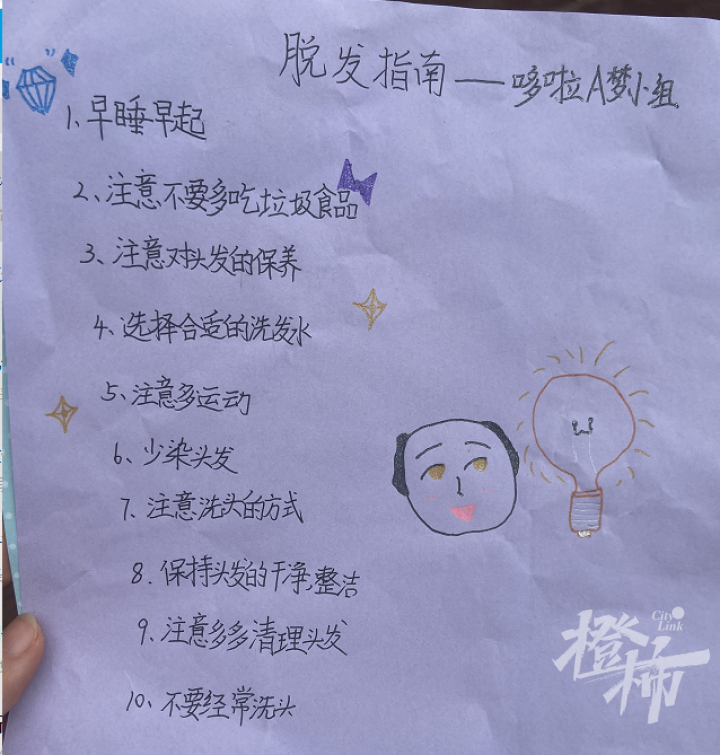 脱发指南——哆啦A梦小组
1、早睡早起
2、注意不要多吃垃圾食品
3、注意对头发的保养
4、选择合适的洗发水
5、注意多运动
6、少染头发
7、注意洗头的方式
8.保持头发的干净,整洁
9、注意多多清理头发
10、不要经常洗头
City Link
橙柿